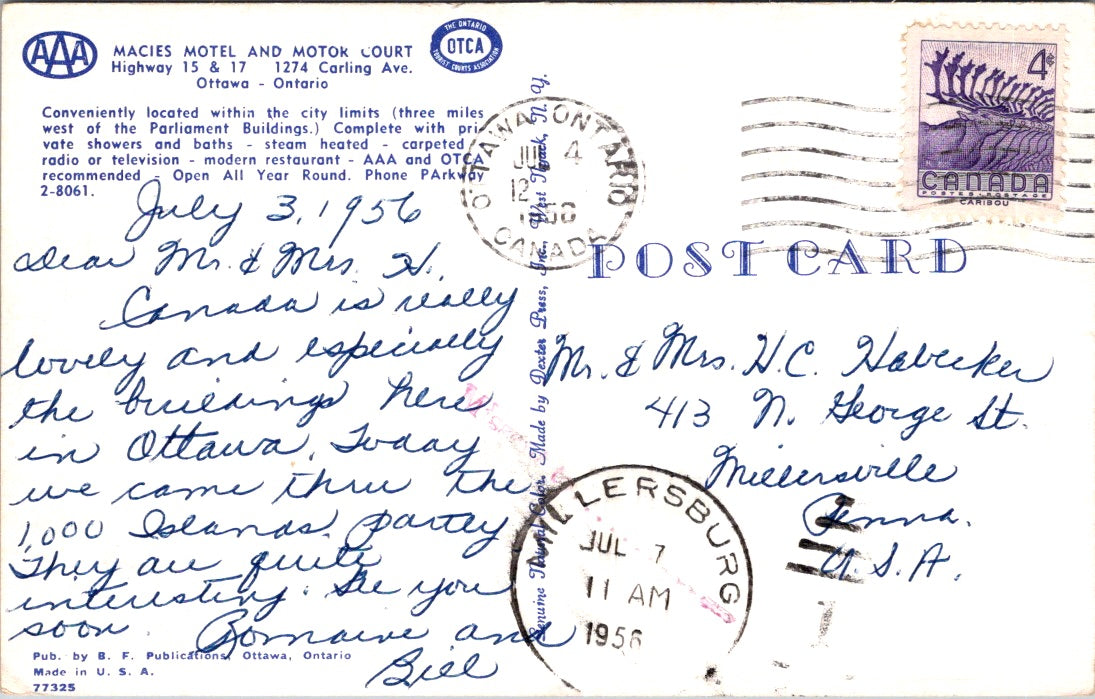 AAA
MACIES MOTEL AND MOTOR COURT
Highway 15 & 17 1274 Carling Ave.
Ottawa - Ontario
THE ONTARIO
OTCA
TOURIST COURTS ASSOCIATION
Conveniently located within the city limits (three miles
west of the Parliament Buildings.) Complete with pri-
vate showers and baths - steam heated - carpeted -
radio or television - modern restaurant - AAA and OTCA
recommended - Open All Year Round. Phone PArkway
2-8061.
July 3, 1956
Dear Mr. & Mrs. H.,
Canada is really
lovely and especially
the buildings here
in Ottawa. Today
we came thru the
1,000 Islands, partly
They are quite
interesting. See you
soon
Romaine and
Bill
Pub. by B. F. Publications, Ottawa, Ontario
Made in U. S. A.
77325
Genuine Natural Color. Made by Dexter Press, Inc., West Nyack, N. Y.
OTTAWA ONTARIO
JUL 4
12
CANADA
4¢
CANADA
POSTES-POSTAGE
CARIBOU
POST CARD
Mr. & Mrs. H. C. Habecker
413 N. George St.
Millersville
Penna.
U. S. A.
MILLERSBURG
JUL 7
11 AM
1956
1